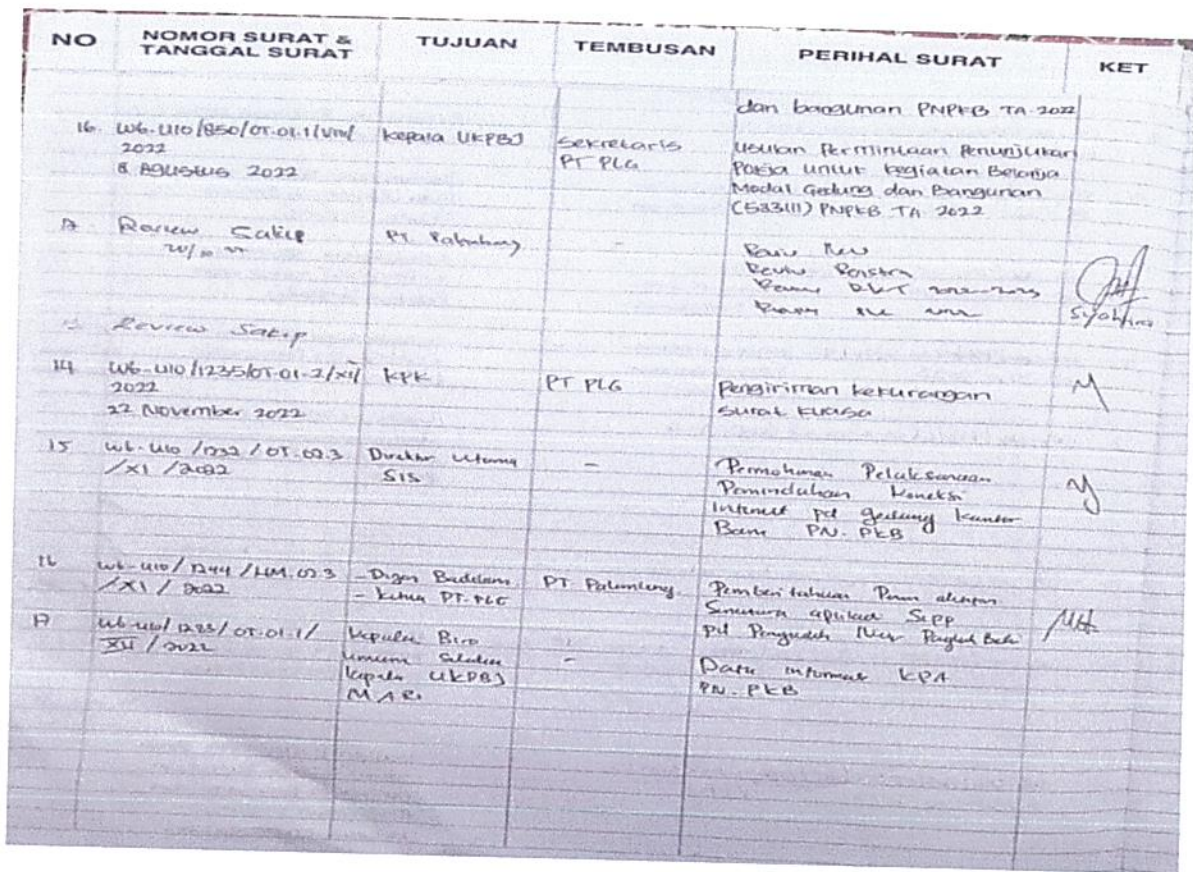 NO NOMOR SURAT & TANGGAL SURAT TUJUAN TEMBUSAN PERIHAL SURAT KET
dan bangunan PNPKB TA 2022
16. W6-U10/850/OT.01.1/VIII/
2022
8 Agustus 2022
Kepala UKPBJ
Sekretaris
PT PLG
Usulan Permintaan Penunjukan
Pokja untuk kegiatan Belanja
Modal Gedung dan Bangunan
(533111) PNPKB TA 2022
17 Review Sakip
PT Palembang
-
Reviu
Reviu Renstra
Syahira
Review Sakip
14 W6-U10/1235/OT-01-2/XI/
2022
22 November 2022
KPK
PT PLG
pengiriman kekurangan
surat kuasa
15 W6-U10/1232/OT.02.3
/XI/2022
Direktur Utama
SIS
-
Permohonan Pelaksanaan
Pemindahan Koneksi
Internet pd gedung kantor
Baru PN. PKB
16 W6-U10/1244/HM.02.3
/XI/2022
- Dirjen Badilum
- Ketua PT. PLG
PT Palembang
Pemberitahuan
Sementara aplikasi SIPP
pd
17 W6-U10/1283/OT.01.1/
XII/2022
Kepala Biro
Umum Selaku
Kepala UKPBJ
MARI
-
Data informasi KPA
PN. PKB